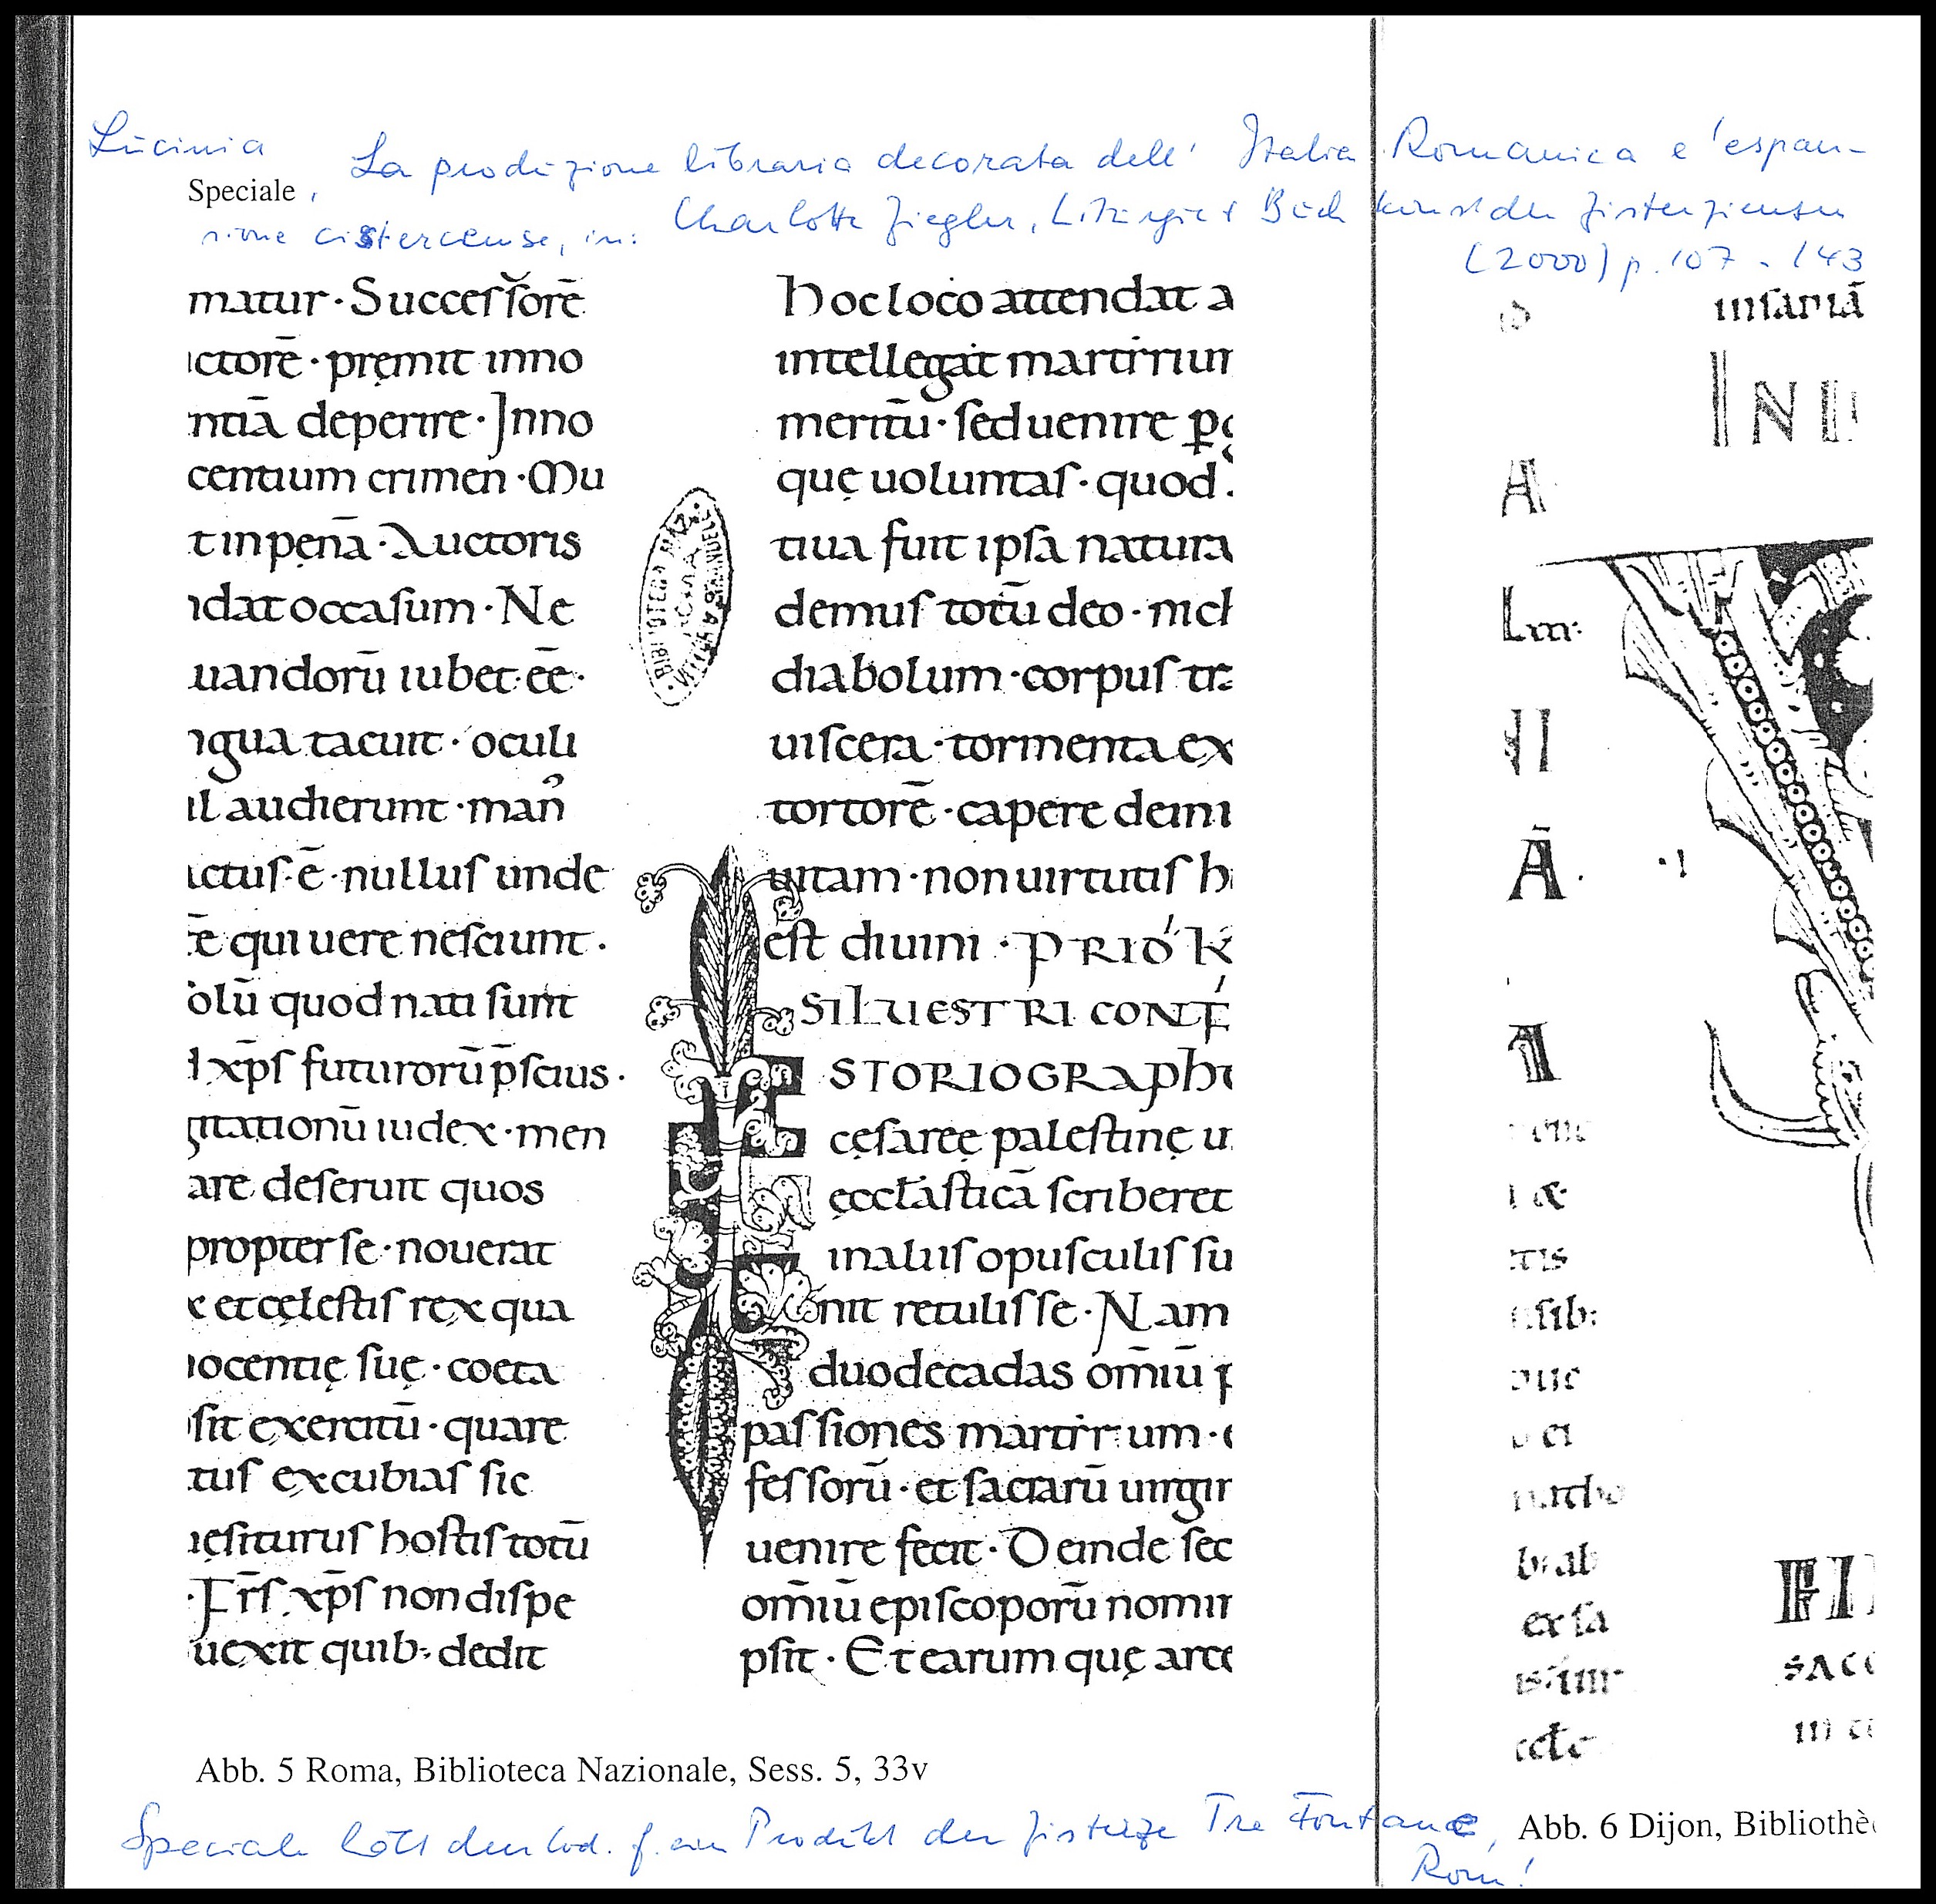 Lucinia
Speciale, La produzione libraria decorata dell' Italia Romanica e l'espan-
sione cistercense, in: Charlotte Ziegler, Liturgie u Buchkunst der Zisterzienser
(2000) p. 107 - 143
matur · Succeſſorē
ctorē · pręmit inno
ntiā deperire · Inno
centium crimen · Mu
t in pęnā · Auctoris
idat occaſum · Ne
uandorū iubet · ēē ·
ngua tacuit · oculi
il audierunt · man᾿
ctuſ · ē · nulluſ unde
ē qui uere neſciunt ·
olū quod nati ſunt
xp̄ſ futurorū p̄ſcius ·
gitationū iudex · men
are deſeruit quos
propter ſe · nouerat
x et cęleſtiſ rex qua
nocentię ſuę · coeta
ſit exercitū · quare
tuſ excubiaſ ſic
ieſituruſ hoſtiſ totū
· Fr̄ſ xp̄ſ non diſpe
uexit quib; dedit
hoc loco attendat a
intellegat martiriun
meritū · ſed uenire
quę uoluntaſ · quod
tiua fuit ipſa natura
demuſ totū deo · nich
diabolum · corpuſ tra
uiſcera · tormenta ex
tortorē · capere deini
uitam · non uirtutiſ h
eſt diuini · PRIO' K
SILUESTRI CONF
STORIOGRAphu
cęſareę paleſtinę u
ęccl̄aſticā ſcriberet
in aliiſ opuſculiſ ſu
nit retuliſſe · Nam
duodecadas om̄iū p
paſſiones martirum ·
feſſorū · et ſacrarū uirgin
uenire fecit · Deinde ſec
om̄iū epiſcoporū nomin
pſit · Et earum quę arte
BIBLIOTECA NAZ.
ROMA
VITTORIO EMANUELE
Abb. 5 Roma, Biblioteca Nazionale, Sess. 5, 33v
Speciale hält den Cod. f. ein Produkt der Zisterze Tre Fontane,
Rom!
inſaniā
INI
A
Ā
ex ſa
FI
SACC
Abb. 6 Dijon, Bibliothè